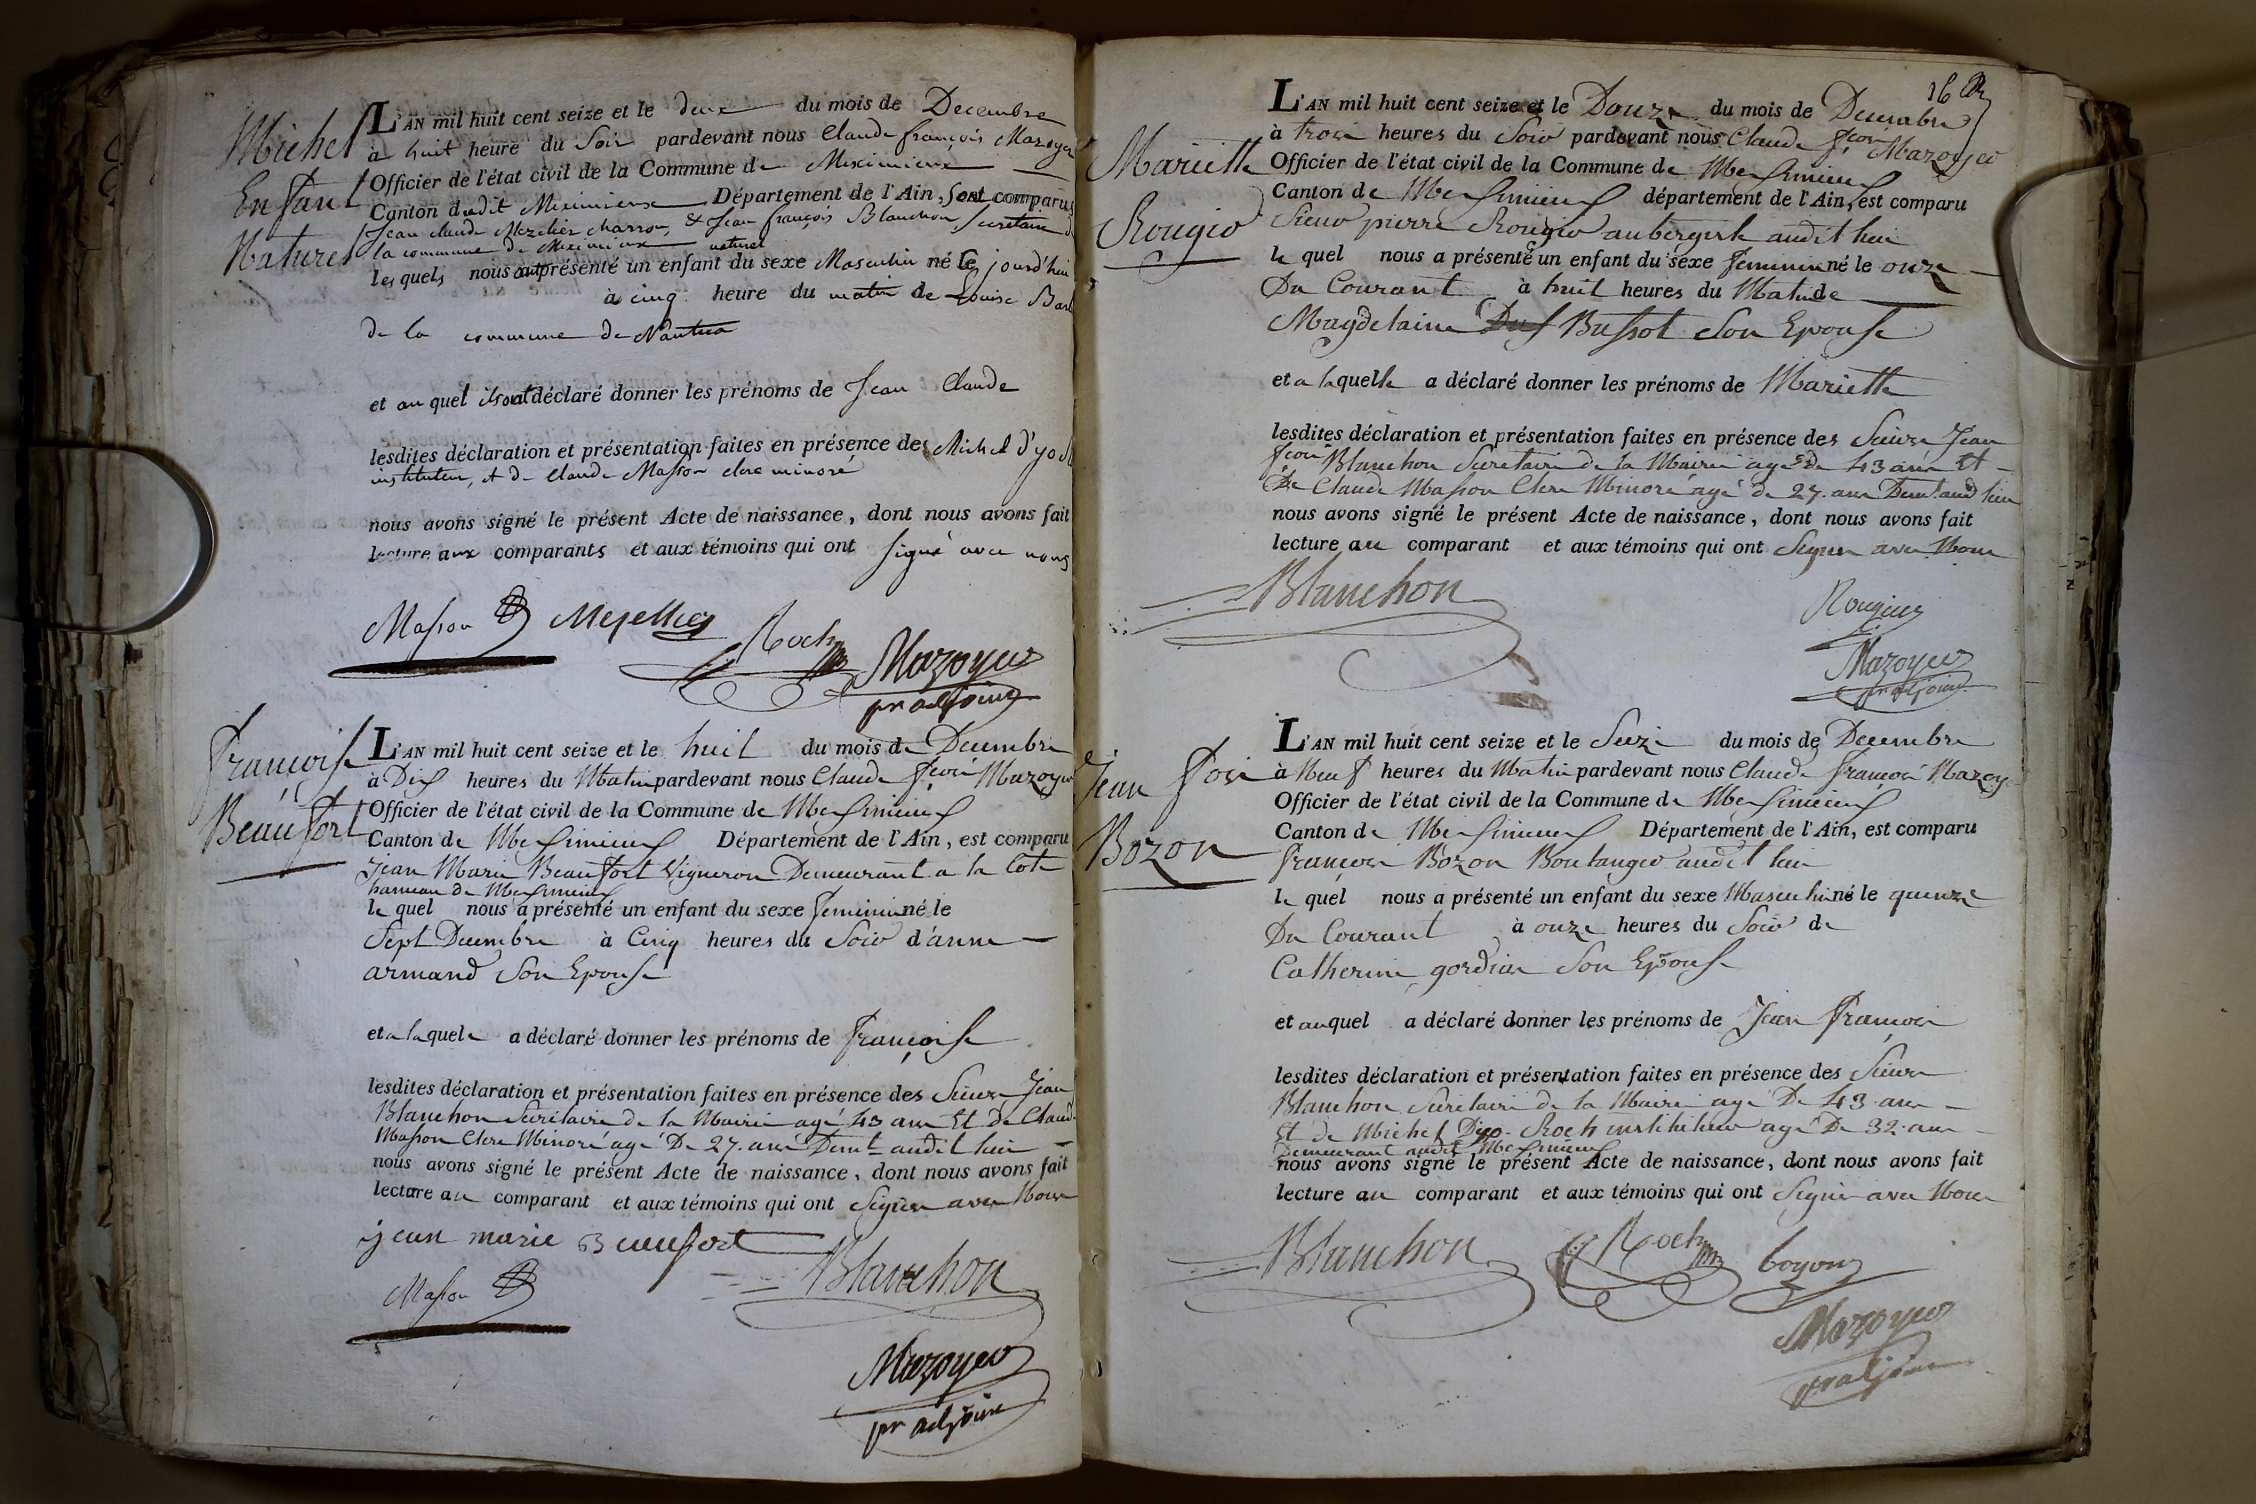 Michel
Enfant
Naturel
L'AN mil huit cent seize et le deux du mois de Decembre
à huit heure du Soir pardevant nous Claude françois Mazoyer
Officier de l'état civil de la Commune de Meximieux
Canton dudit Meximieux Département de l'Ain, sont comparus
Jean claude Mezelier charron, & Jean françois Blanchon Secretaire de
la commune de Meximieux naturel
lesquels nous ont présenté un enfant du sexe Masculin né le jourd'hui
à cinq heure du matin de Louise
de la commune de Nantua
et au quel ils ont déclaré donner les prénoms de Jean Claude
lesdites déclaration et présentation faites en présence des Michel
instituteur, et de Claude Masson clerc minoré
nous avons signé le présent Acte de naissance, dont nous avons fait
lecture aux comparants et aux témoins qui ont signé avec nous
Masson Mezellier
Roch Mazoyer
pr adjoint
françoise
Beaufort
L'AN mil huit cent seize et le huit du mois de Decembre
à Dix heures du Matin pardevant nous Claude fçois Mazoyer
Officier de l'état civil de la Commune de Meximieux
Canton de Meximieux Département de l'Ain, est comparu
Jean Marie Beaufort Vigneron Demeurant a la Cote
hameau de Meximieux
le quel nous a présenté un enfant du sexe feminin né le
Sept Decembre à Cinq heures du Soir d'anne
armand Son Epouse
et a laquele a déclaré donner les prénoms de françoise
lesdites déclaration et présentation faites en présence des Sieurs Jean
Blanchon Secretaire de la Mairie agé 43 ans Et de Claude
Masson Clerc Minoré agé De 27 ans Demt audit lieu
nous avons signé le présent Acte de naissance, dont nous avons fait
lecture au comparant et aux témoins qui ont Signer avec Nous
jean marie Beaufort
Blanchon
Masson
Mazoyer
pr adjoint
16
Mariette
Rougier
L'AN mil huit cent seize et le Douze du mois de Decembre
à trois heures du Soir pardevant nous Claude fçois Mazoyer
Officier de l'état civil de la Commune de Meximieux
Canton de Meximieux département de l'Ain, est comparu
Sieur pierre Rougier aubergiste audit lieu
le quel nous a présenté un enfant du sexe feminin né le onze
Du Courant à huit heures du Matin de
Magdelaine Bussot Son Epouse
et a laquelle a déclaré donner les prénoms de Mariette
lesdites déclaration et présentation faites en présence des Sieurs Jean
fçois Blanchon Secretaire de la Mairie agé de 43 ans Et
De Claude Masson Clerc Minoré agé de 27 ans Demt aud lieu
nous avons signé le présent Acte de naissance, dont nous avons fait
lecture au comparant et aux témoins qui ont Signer avec Nous
Blanchon
Rougier
Mazoyer
pr adjoint
Jean fçois
Bozon
L'AN mil huit cent seize et le Seize du mois de Decembre
à Neuf heures du Matin pardevant nous Claude françois Mazoyer
Officier de l'état civil de la Commune de Meximieux
Canton de Meximieux Département de l'Ain, est comparu
françois Bozon Boulanger audit lieu
le quel nous a présenté un enfant du sexe Masculin né le quinze
Du Courant à onze heures du Soir de
Catherine gordian Son Epouse
et auquel a déclaré donner les prénoms de Jean françois
lesdites déclaration et présentation faites en présence des Sieurs
Blanchon Secretaire de la Mairie agé De 43 ans
Et de Michel Roch instituteur agé De 32 ans
Demeurant audit Meximieux
nous avons signé le présent Acte de naissance, dont nous avons fait
lecture au comparant et aux témoins qui ont Signer avec Nous
Blanchon Roch bozon
Mazoyer
pr adjoint